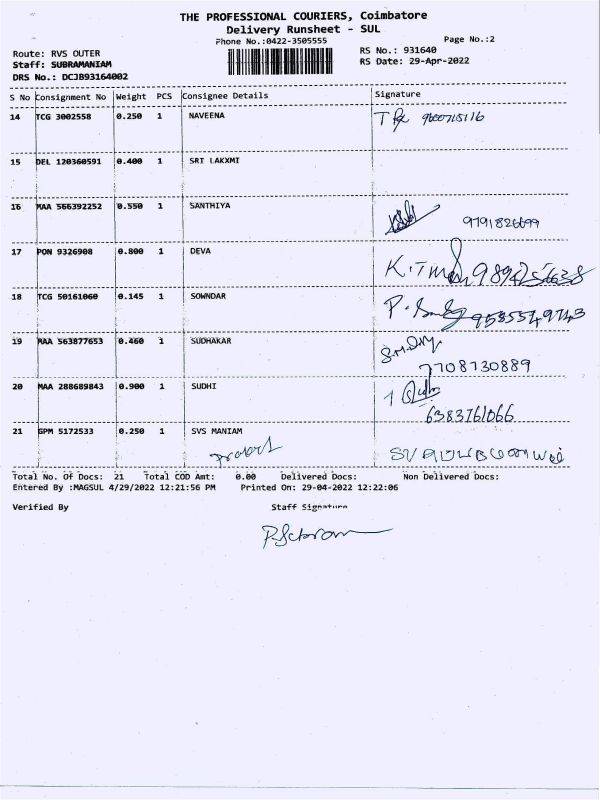 THE PROFESSIONAL COURIERS, Coimbatore
Delivery Runsheet - SUL
Phone No.:0422-3505555
Page No.:2
Route: RVS OUTER
RS No.: 931640
Staff: SUBRAMANIAM
RS Date: 29-Apr-2022
DRS No.: DCJB93164002
S No Consignment No Weight PCS Consignee Details Signature
14 TCG 3002558 0.250 1 NAVEENA
15 DEL 120360591 0.400 1 SRI LAKXMI
16 MAA 566392252 0.550 1 SANTHIYA
9791826699
17 PON 9326908 0.800 1 DEVA
18 TCG 50161060 0.145 1 SOWNDAR
19 MAA 563877653 0.460 1 SUDHAKAR
7708730889
20 MAA 288689843 0.900 1 SUDHI
6383761066
21 GPM 5172533 0.250 1 SVS MANIAM
Total No. Of Docs: 21 Total COD Amt: 0.00 Delivered Docs: Non Delivered Docs:
Entered By :MAGSUL 4/29/2022 12:21:56 PM Printed On: 29-04-2022 12:22:06
Verified By Staff Signature